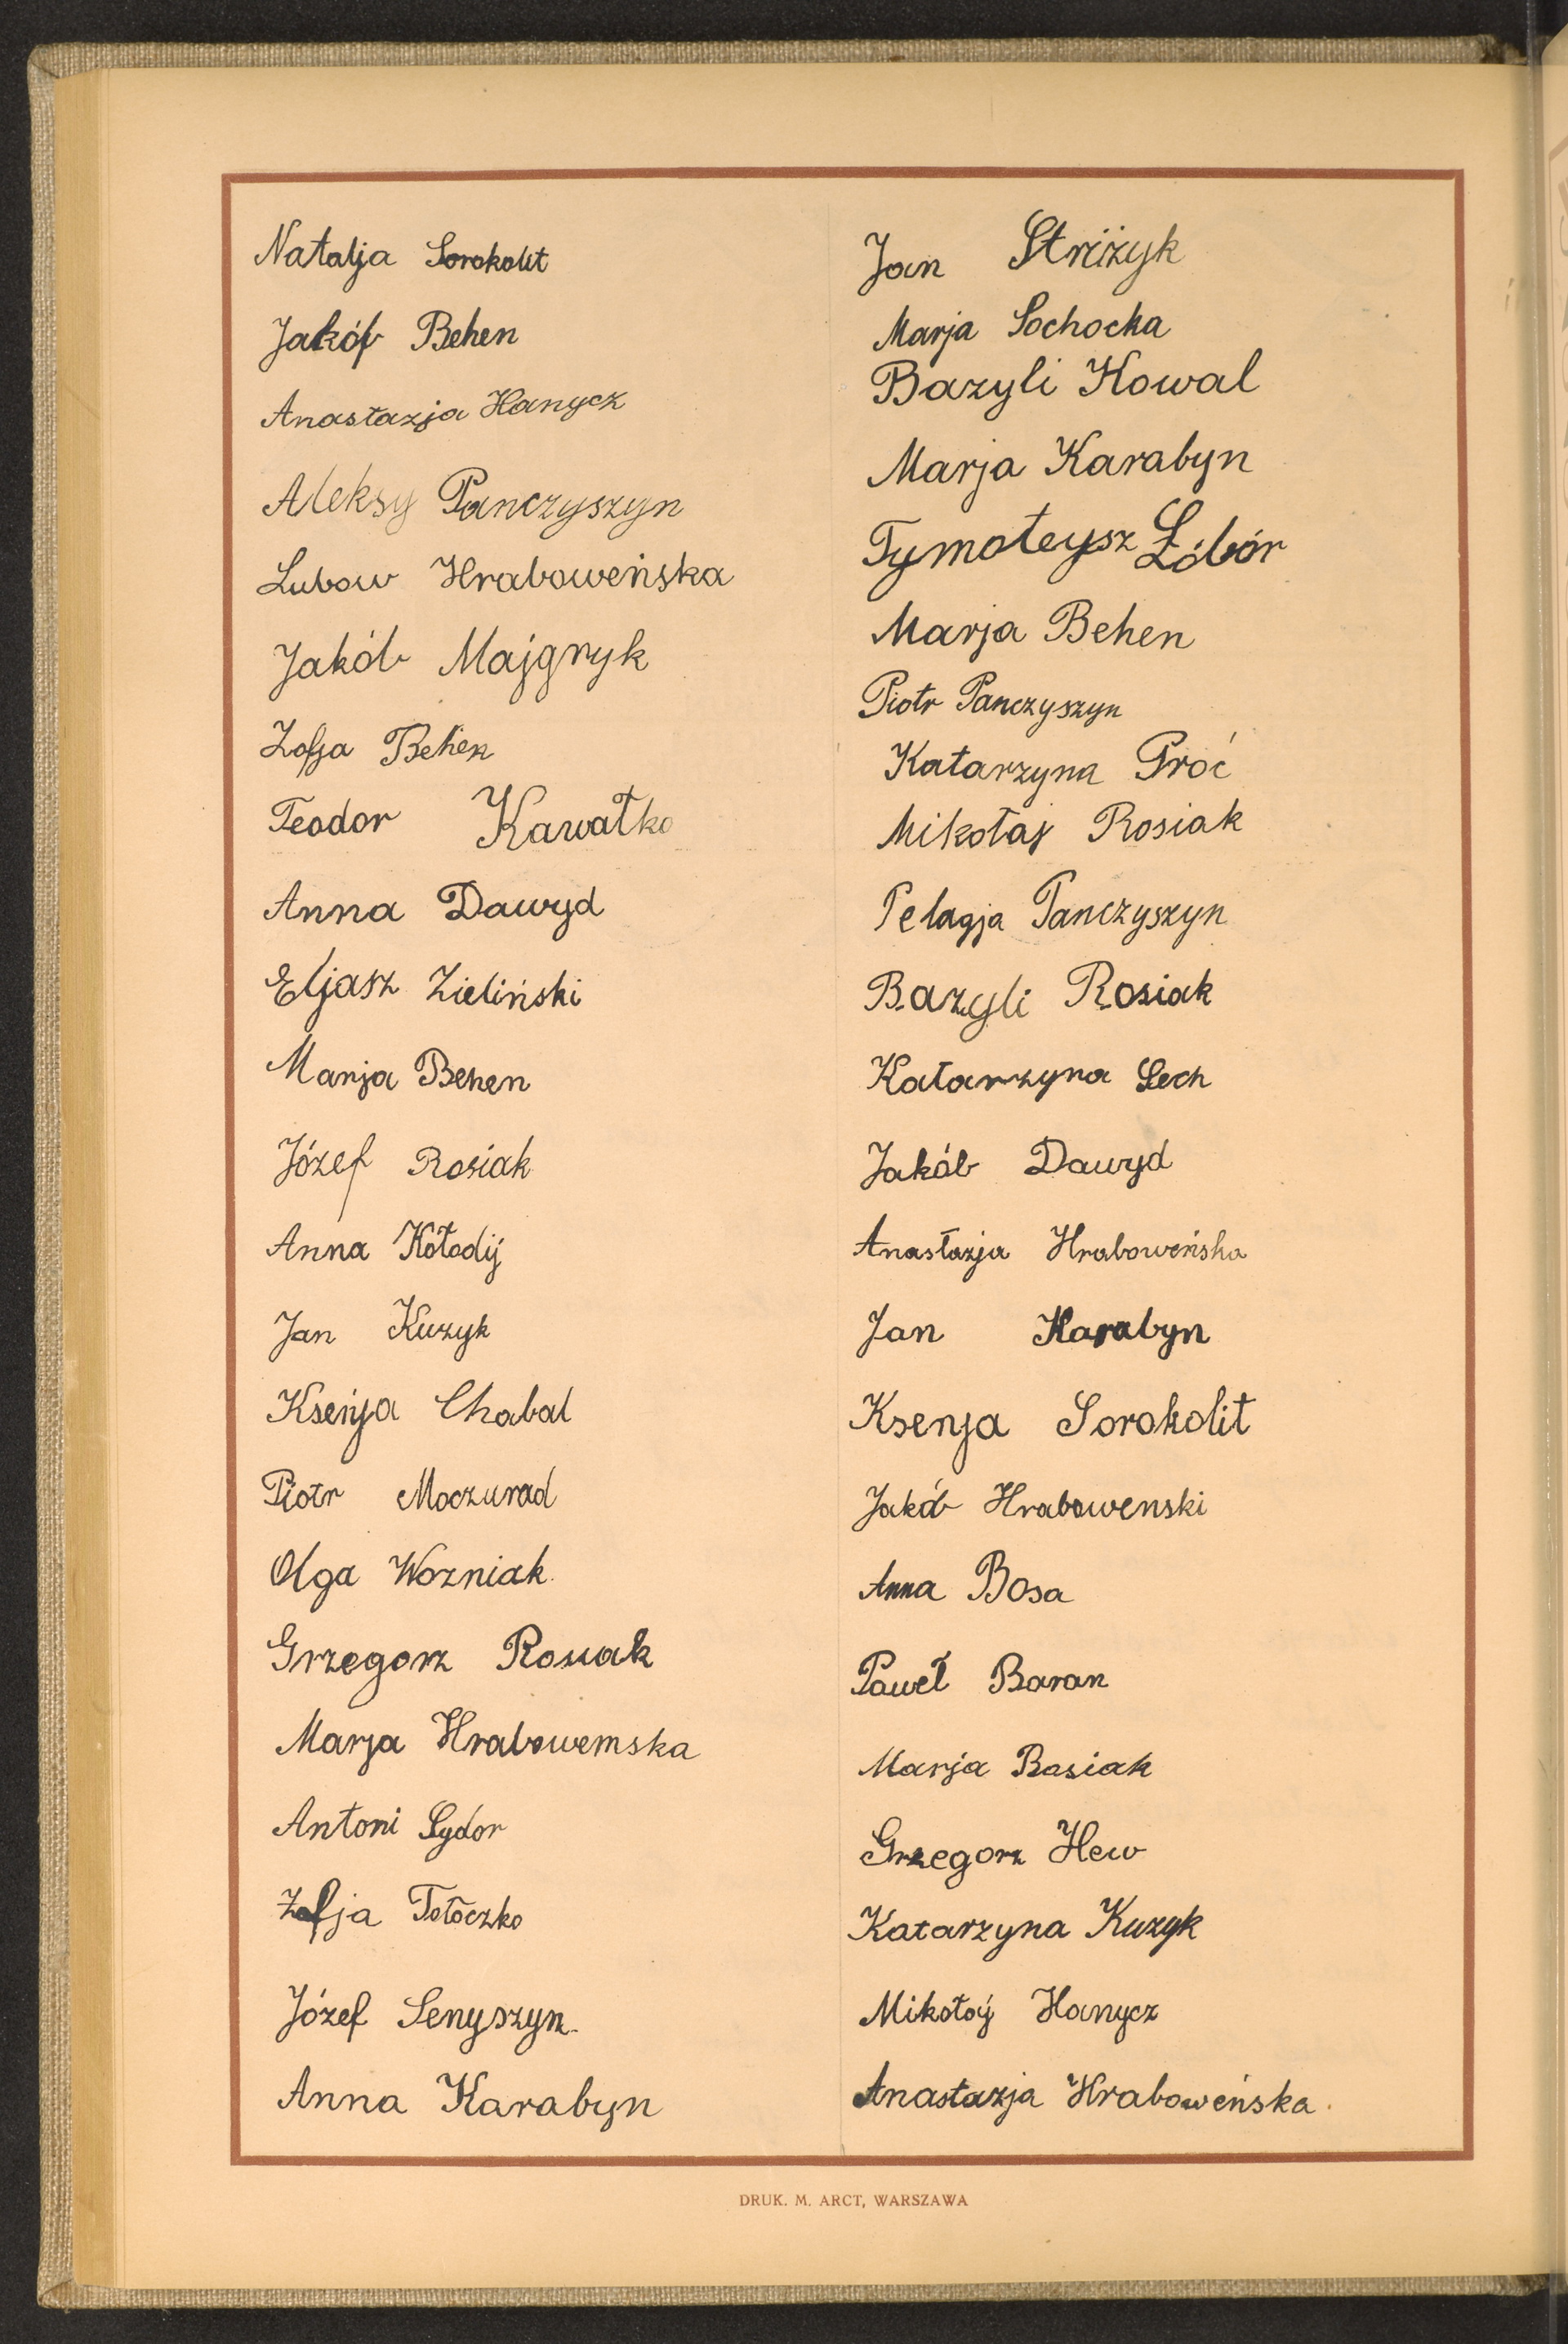 Natalja Sorokolit
Jakób Behen
Anastazja Hanycz
Aleksy Panczyszyn
Lubow Hraboweńska
Jakób Majgryk
Zofja Behen
Teodor Kawałko
Anna Dawyd
Eljasz Zieliński
Marja Behen
Józef Rosiak
Anna Kołodij
Jan Kuzyk
Ksenja Chabal
Piotr Moczurad
Olga Wozniak
Grzegorz Rosiak
Marja Hrabowemska
Antoni Sydor
Zofja Tołoczko
Józef Senyszyn
Anna Karabyn
Jan Striżyk
Marja Sochocka
Bazyli Kowal
Marja Karabyn
Tymoteysz Zóbór
Marja Behen
Piotr Panczyszyn
Katarzyna Proć
Mikołaj Rosiak
Pelagja Panczyszyn
Bazyli Rosiak
Katarzyna Lech
Jakób Dawyd
Anastazja Hraboweńska
Jan Karabyn
Ksenja Sorokolit
Jakób Hrabowenski
Anna Bosa
Paweł Baran
Marja Rosiak
Grzegorz Hew
Katarzyna Kuzyk
Mikołaj Hanycz
Anastazja Hraboweńska
DRUK. M. ARCT, WARSZAWA